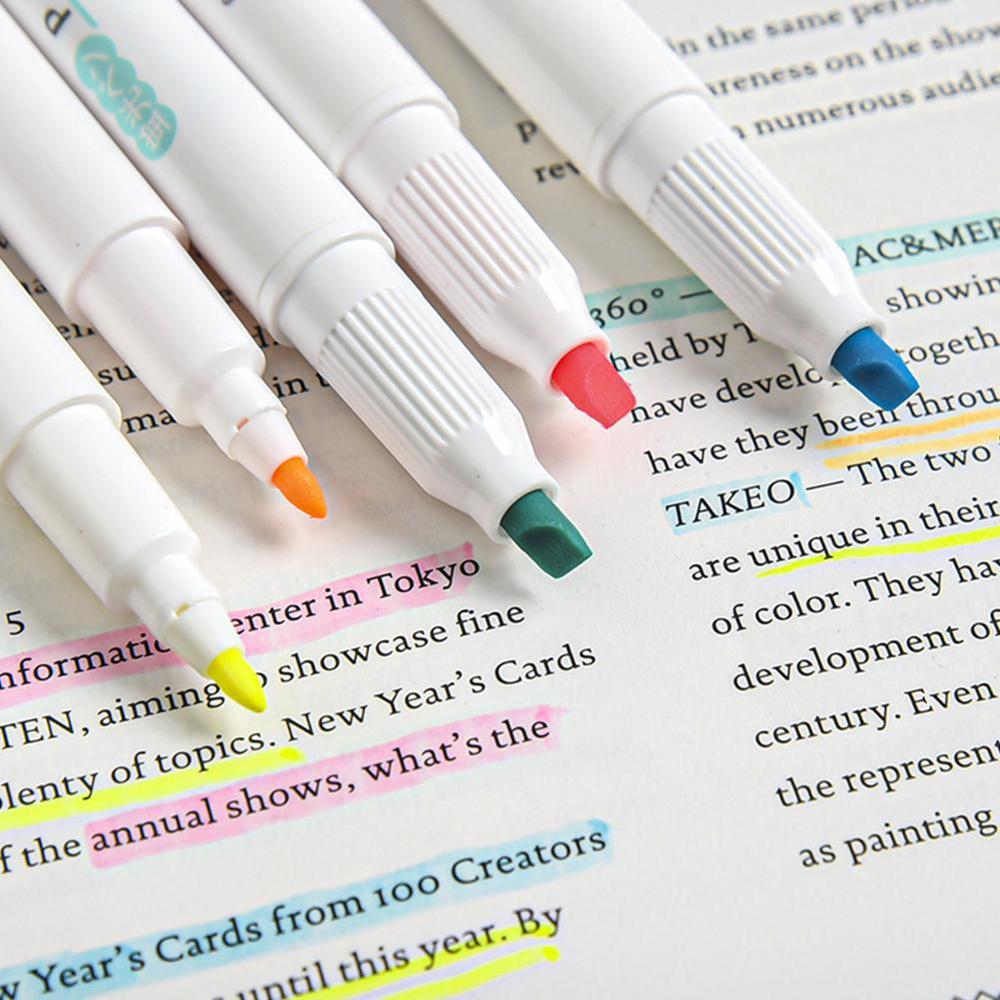 P
蛍光ペン
in the same period
areness on the show
numerous audie
in
5
enter in Tokyo
TEN, aiming showcase fine
plenty of topics. New Year's Cards
of the annual shows, what's the
Year's Cards from 100 Creators
until this year. By
360° — AC&MER
held by showin
have develo togeth
have they been throu
TAKEO — The two
are unique in their
of color. They hav
development of
century. Even
the represent
as painting